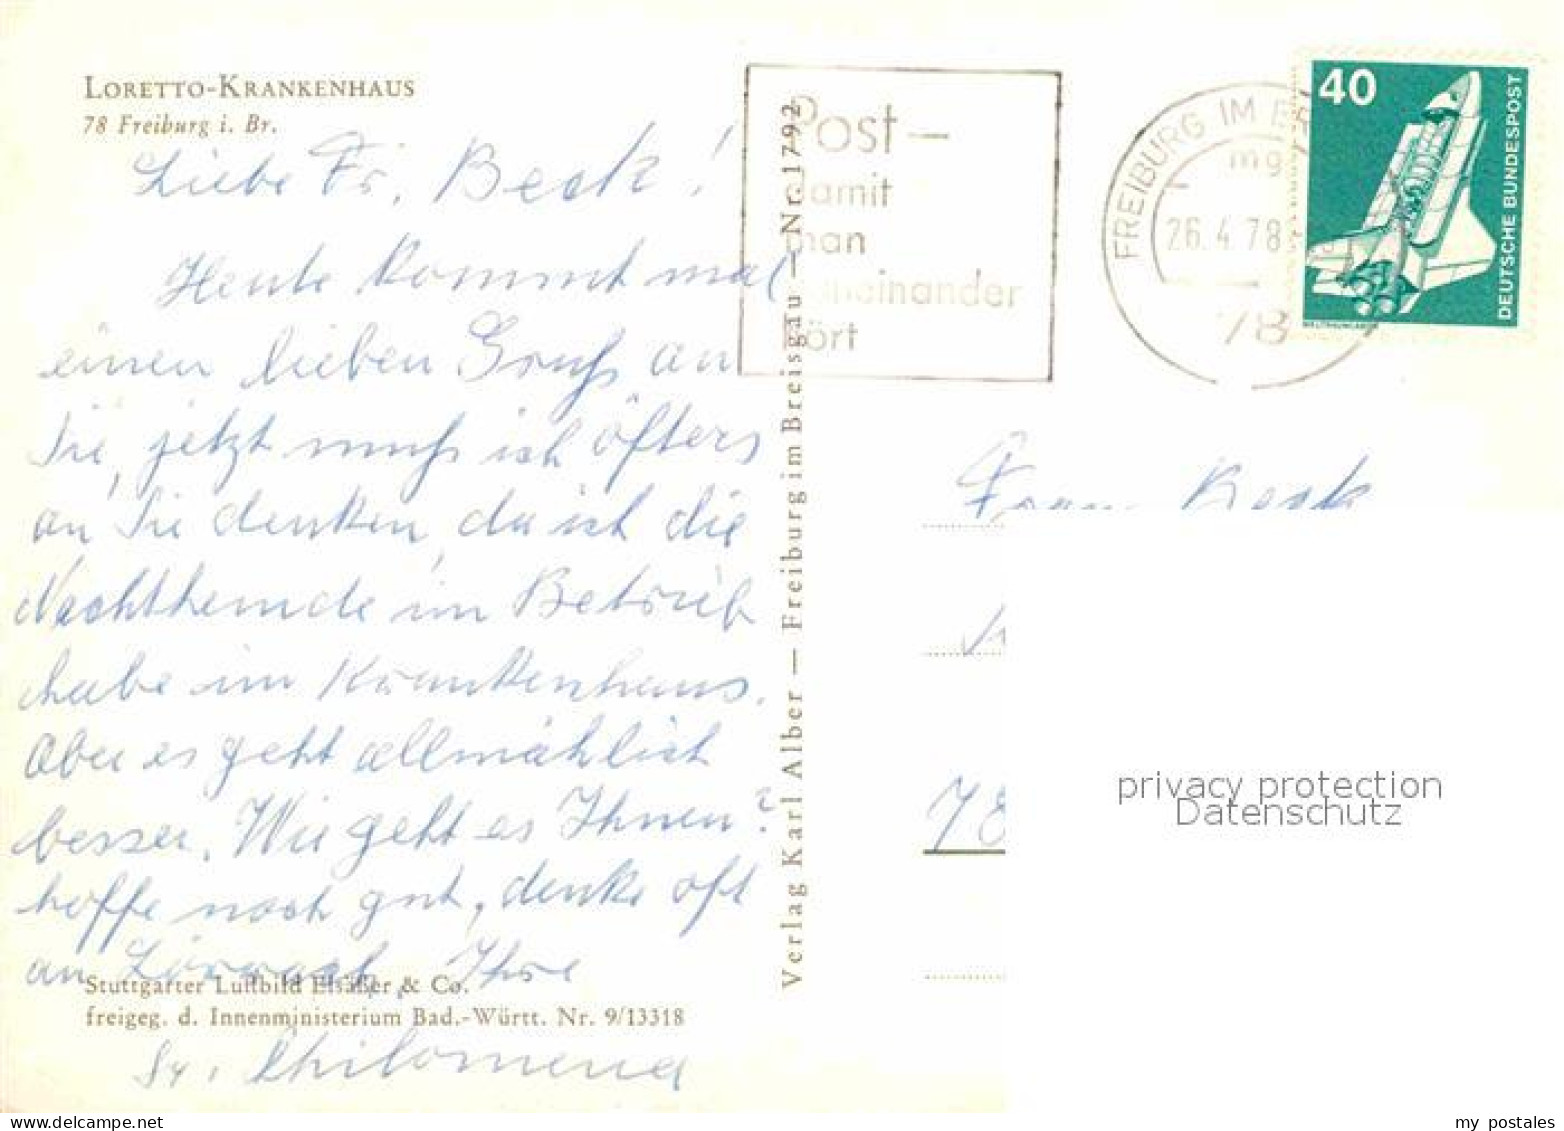 LORETTO-KRANKENHAUS
78 Freiburg i. Br.
Liebe Fr. Beck!
Heute kommt mal
einen lieben Gruß an
Sie, jetzt muß ich öfters
an Sie denken, da ich die
Nachthemde im Betrieb
habe im Krankenhaus.
Aber es geht allmählich
besser. Wie geht es Ihnen?
hoffe noch gut, denke oft
an Lörrach, Ihre
Stuttgarter Luftbild Elsäßer & Co.
freigeg. d. Innenministerium Bad.-Württ. Nr. 9/13318
Sr. Philomena
Verlag Karl Alber — Freiburg im Breisgau — Nr. 1792
Post –
damit
man
voneinander
hört
FREIBURG IM BR
mg
26.4.78
78
40
DEUTSCHE BUNDESPOST
WELTRAUMLABOR
Frau Beck
78
privacy protection
Datenschutz
www.delcampe.net
my_postales